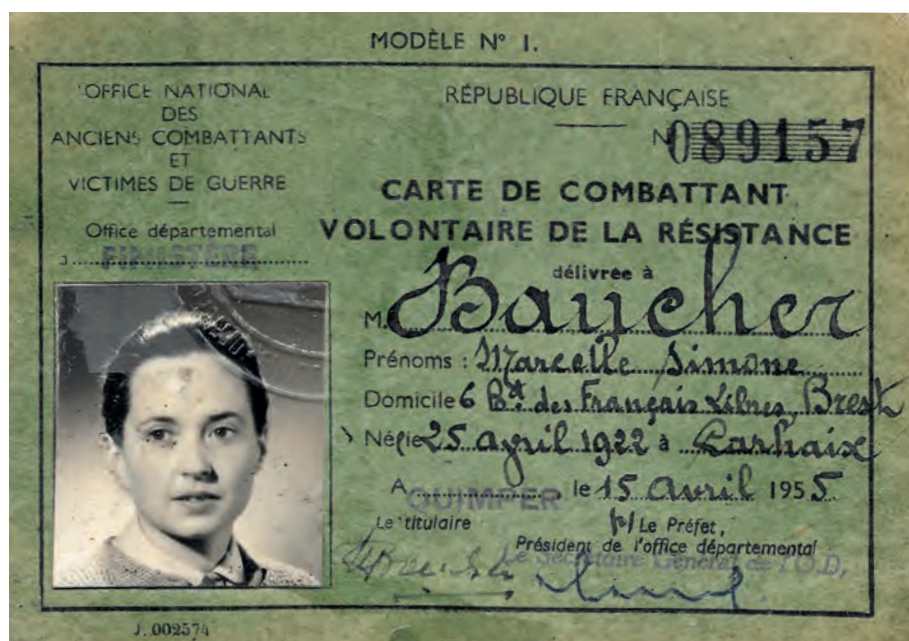 MODÈLE N° 1.
OFFICE NATIONAL
DES
ANCIENS COMBATTANTS
ET
VICTIMES DE GUERRE
Office départemental
FINISTÈRE
RÉPUBLIQUE FRANÇAISE
N° 089157
CARTE DE COMBATTANT
VOLONTAIRE DE LA RÉSISTANCE
délivrée à
M. Baucher
Prénoms : Marcelle Simone
Domicile 6 Bd des Français Libres, Brest
Né(e 25 avril 1922 à Carhaix
A QUIMPER le 15 Avril 1955
Le titulaire
P/ Le Préfet,
Président de l'office départemental
Le Secrétaire Général de l'O.D.
J. 002574